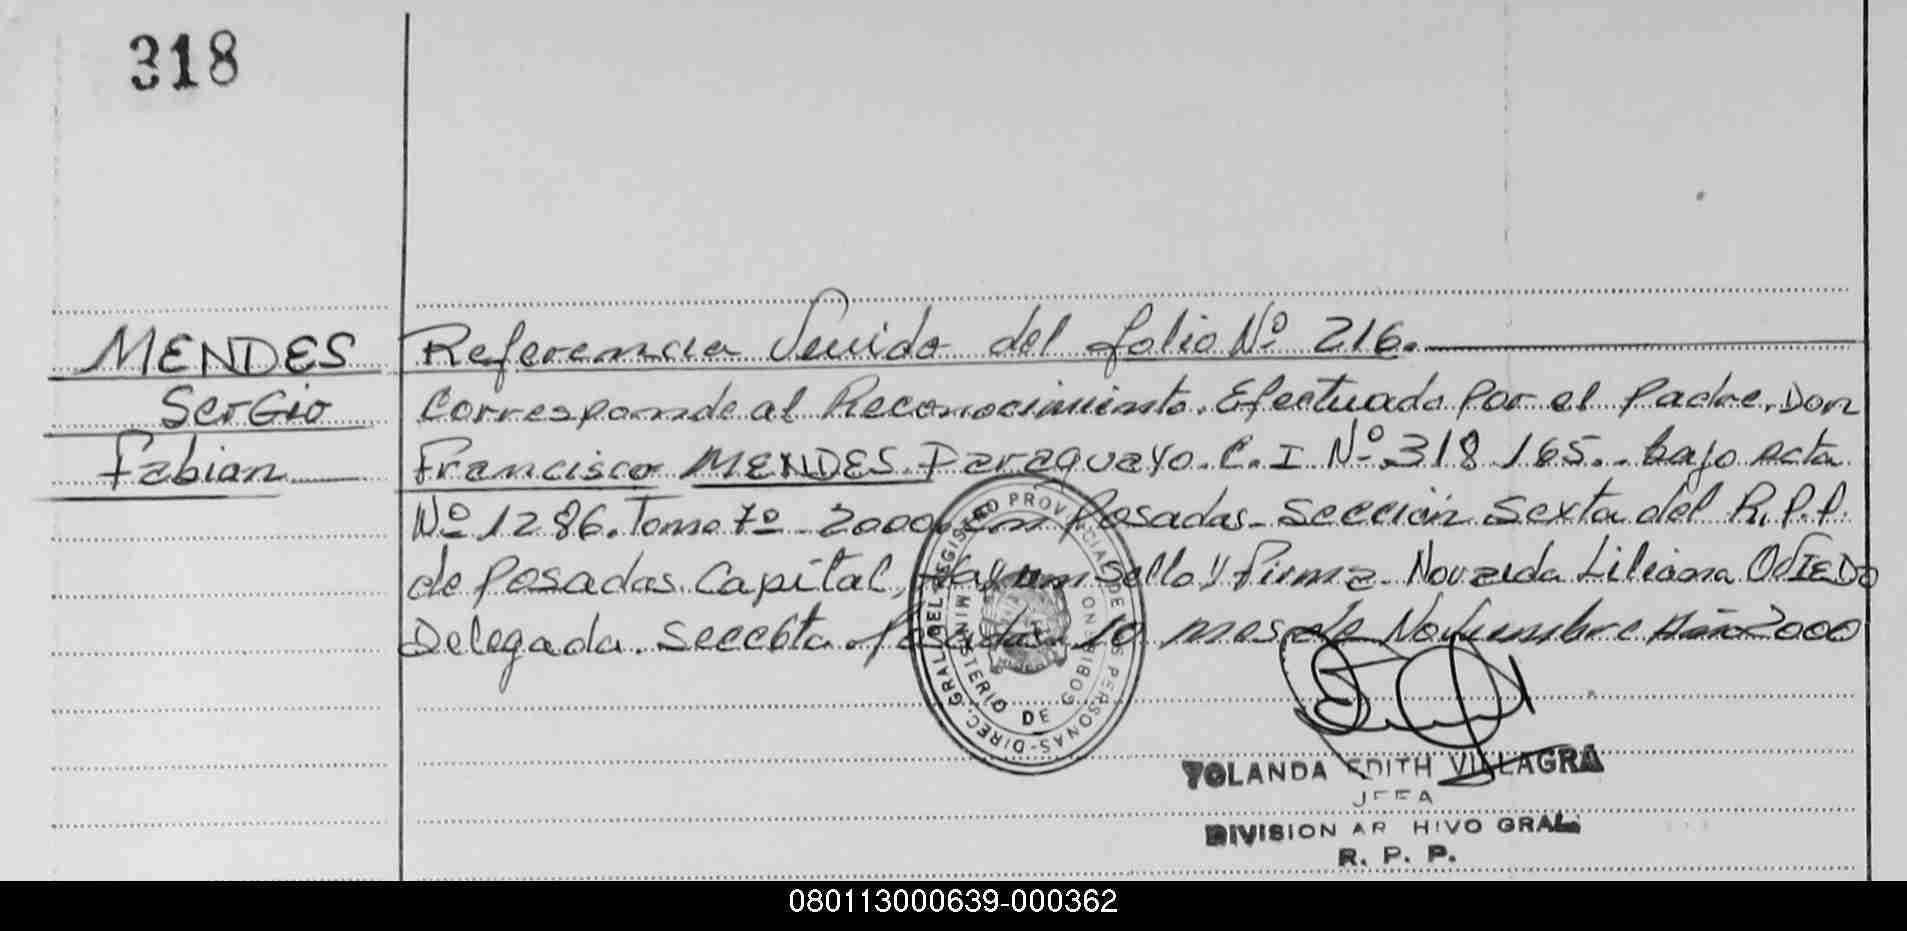 318
MENDES
Sergio
Fabian
Referencia Venido del folio Nº 216.
Corresponde al Reconocimiento. Efectuado Por el Padre. Don
Francisco MENDES. Paraguayo. C. I Nº 318.165.. bajo acta
Nº 1286. Tomo 7º 2000. en Posadas. Sección Sexta del R.P.P.
de Posadas. Capital, Hay un Sello y Firma. Liliana
Delegada. Posadas 10 mes de Noviembre Año 2000
DIREC. GRAL. DEL REGISTRO PROVINCIAL DE PERSONAS
MINISTERIO DE GOBIERNO
YOLANDA EDITH VILLAGRA
JEFA
DIVISION AR HIVO GRAL.
R. P. P.
080113000639-000362